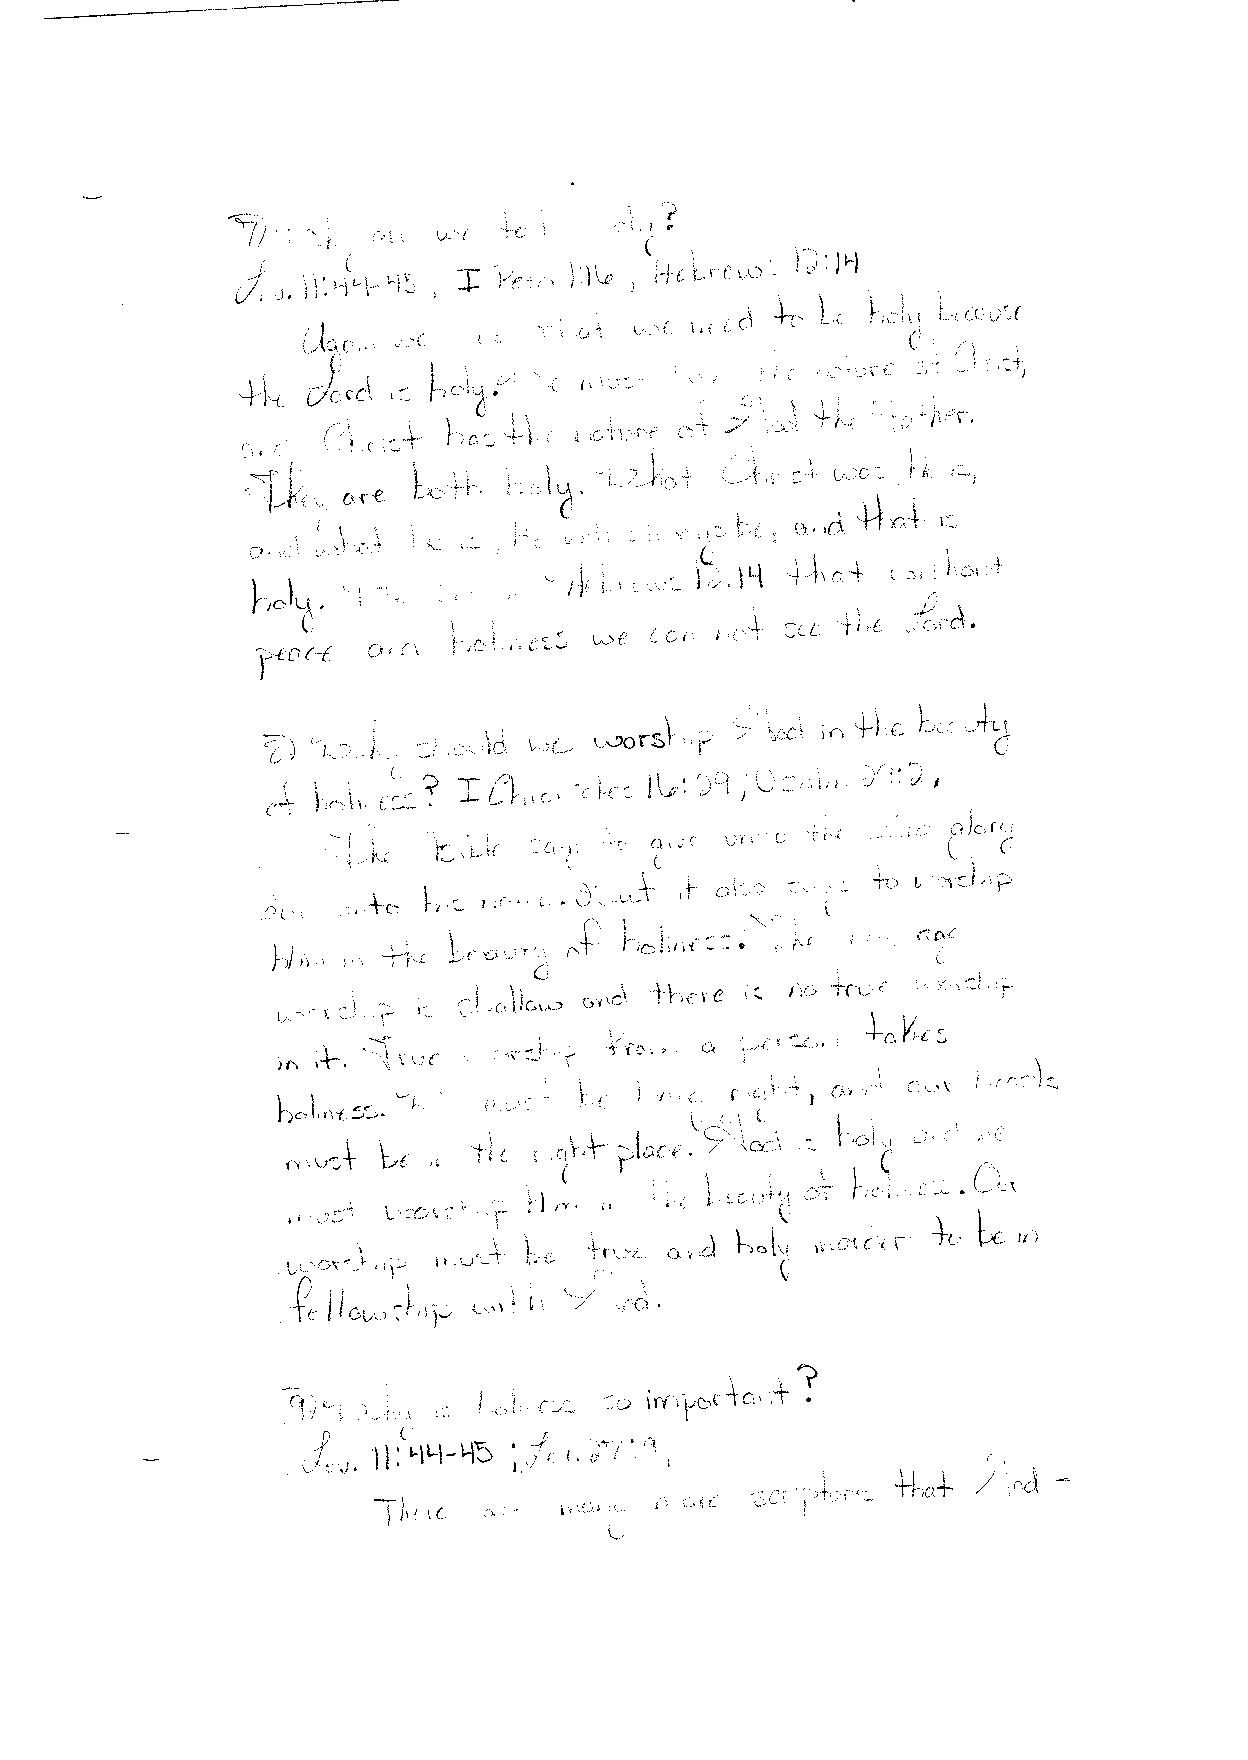 7) Why are we to be holy?
Lev. 11:44-45, I Peter 1:16, Hebrews 12:14
Again we see that we need to be holy because
the Lord is holy. We must have the nature of Christ,
and Christ has the nature of God the Father.
They are both holy. What Christ was, He is,
and what He is, He will always be, and that is
holy. We see in Hebrews 12:14 that without
peace and holiness we can not see the Lord.
8) Why should we worship God in the beauty
of holiness? I Chronicles 16:29; Psalm 29:2,
The Bible says to give unto the Lord glory
due unto his name. But it also says to worship
Him in the beauty of holiness. The new age
worship is shallow and there is no true worship
in it. True worship from a person takes
holiness. We must be living right, and our hearts
must be in the right place. God is holy and we
must worship Him in the beauty of holiness. Our
worship must be true and holy inorder to be in
fellowship with God.
9) Why is holiness so important?
Lev. 11:44-45;
There are many more scriptures that God -